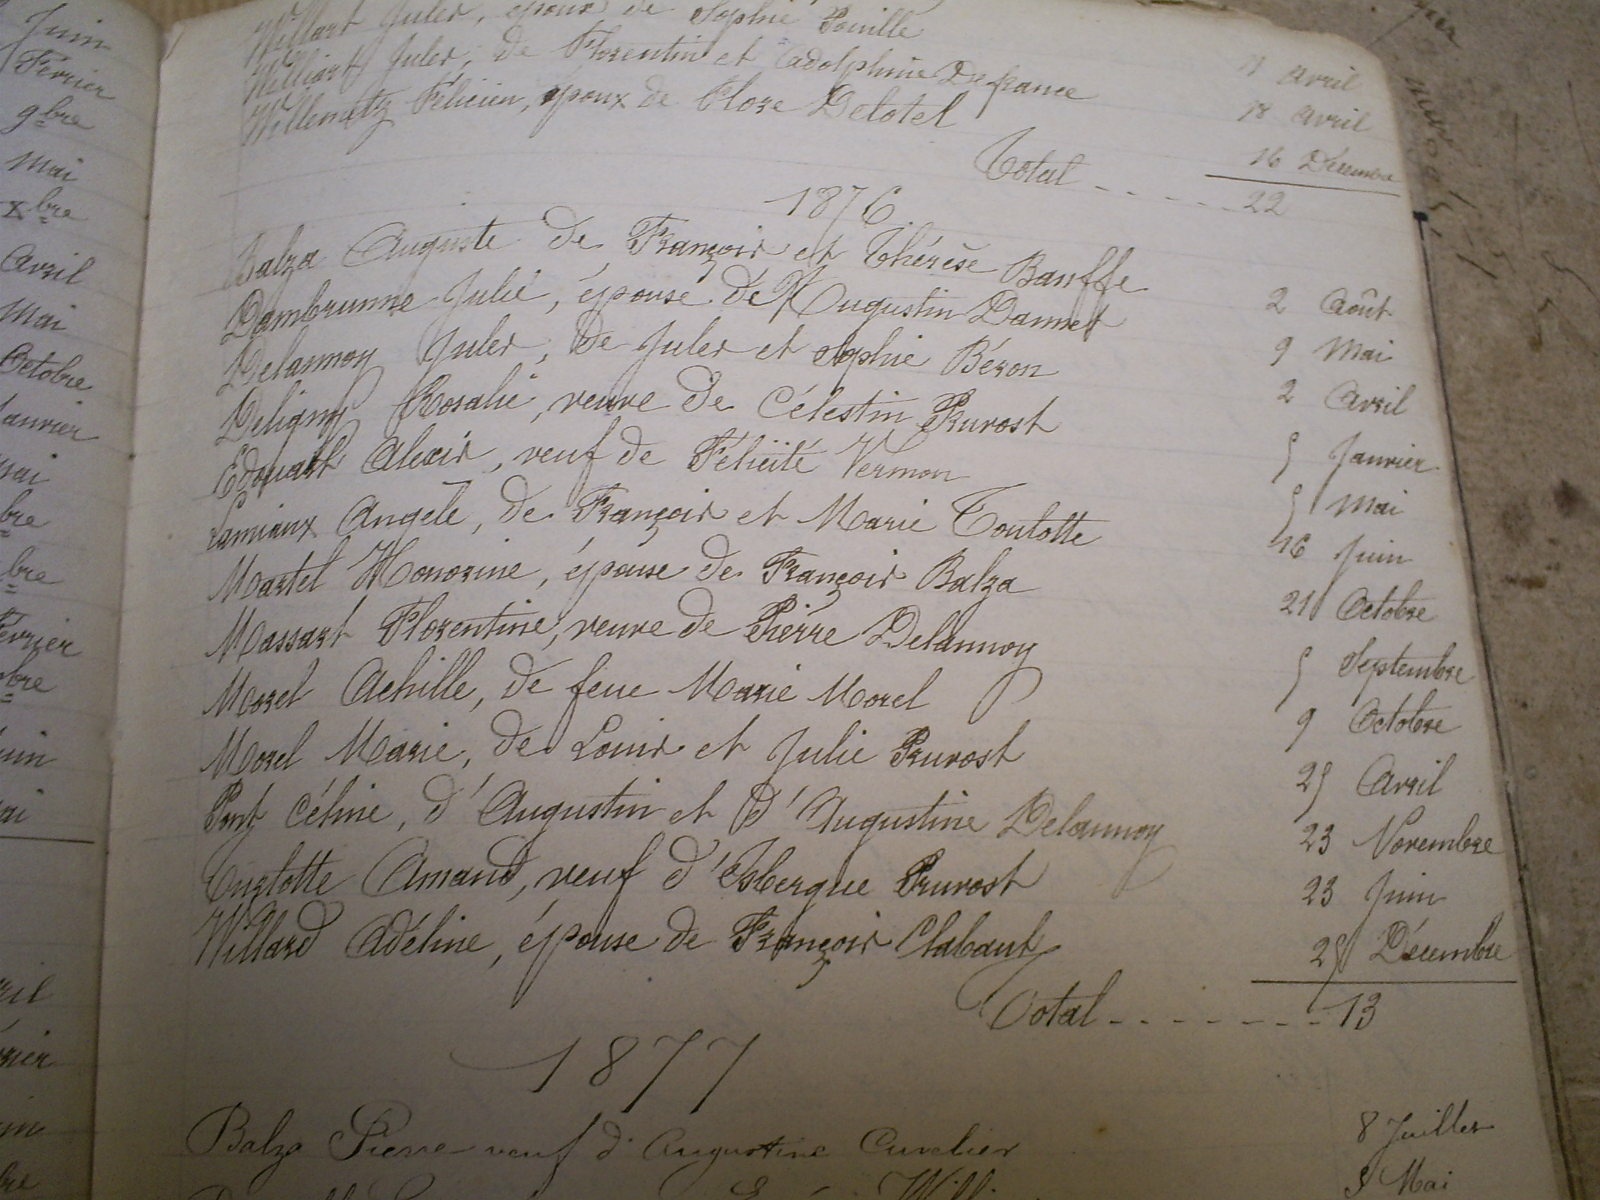 Juin
Février
9bre
Mai
xbre
Avril
Mai
Octobre
Willart Jules, époux de Sophie Pouille 11 Avril
Williart Jules, de Florentin et Adolphine Defrance 18 Avril
Willemetz Félicien, époux de Flore Delotel 16 Décembre
Total - - - - - 22
1876
Balza Auguste de François et Thérèse Bauffe 2 Août
Dambrunne Julie, épouse de Augustin Dannel 9 Mai
Delannoy Jules, de Jules et Sophie Béron 2 Avril
Deligny Rosalie, veuve de Célestin Pruvost 5 Janvier
Edouart Alexis, veuf de Félicité Vermon 5 Mai
Lamiaux Angèle, de François et Marie Toulotte 16 Juin
Martel Honorine, épouse de François Balza 21 Octobre
Massart Florentine, veuve de Pierre Delannoy 5 Septembre
Morel Achille, de feue Marie Morel 9 Octobre
Morel Marie, de Louis et Julie Pruvost 25 Avril
Pont Céline, d'Augustin et d'Augustine Delannoy 23 Novembre
Turlotte Amand, veuf d'Isbergue Pruvost 23 Juin
Willard Adéline, épouse de François Clabaut 25 Décembre
Total - - - - - - - 13
1877
Balza Pierre veuf d'Augustine Cuvelier 8 Juillet
5 Mai